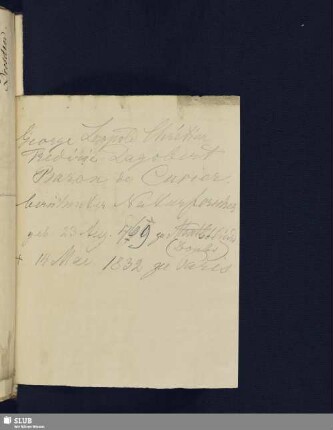 George Leopold Chrétien
Frédéric Dagobert
Baron de Cuvier.
berühmter Naturforscher
geb 23 Aug. 1769 zu
† 13 Mai. 1832 zu Paris
SLUB